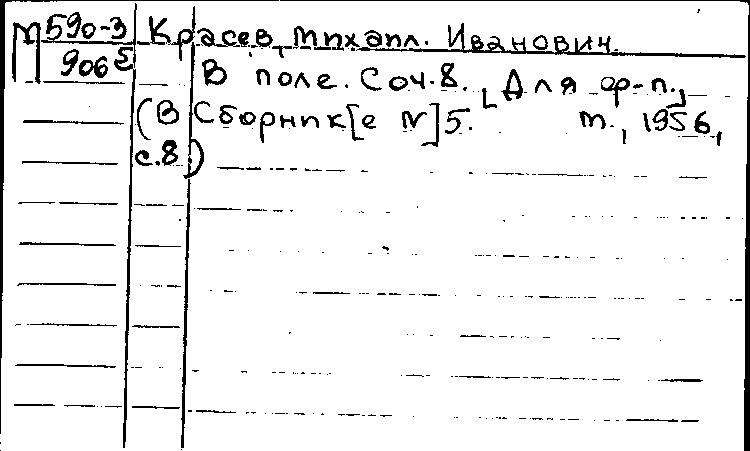 М 590-3 Красев, Михаил. Иванович.
906 5 В поле. Соч. 8. [Для ф-п.]
(В Сборник[е №] 5. М., 1956,
с.8)